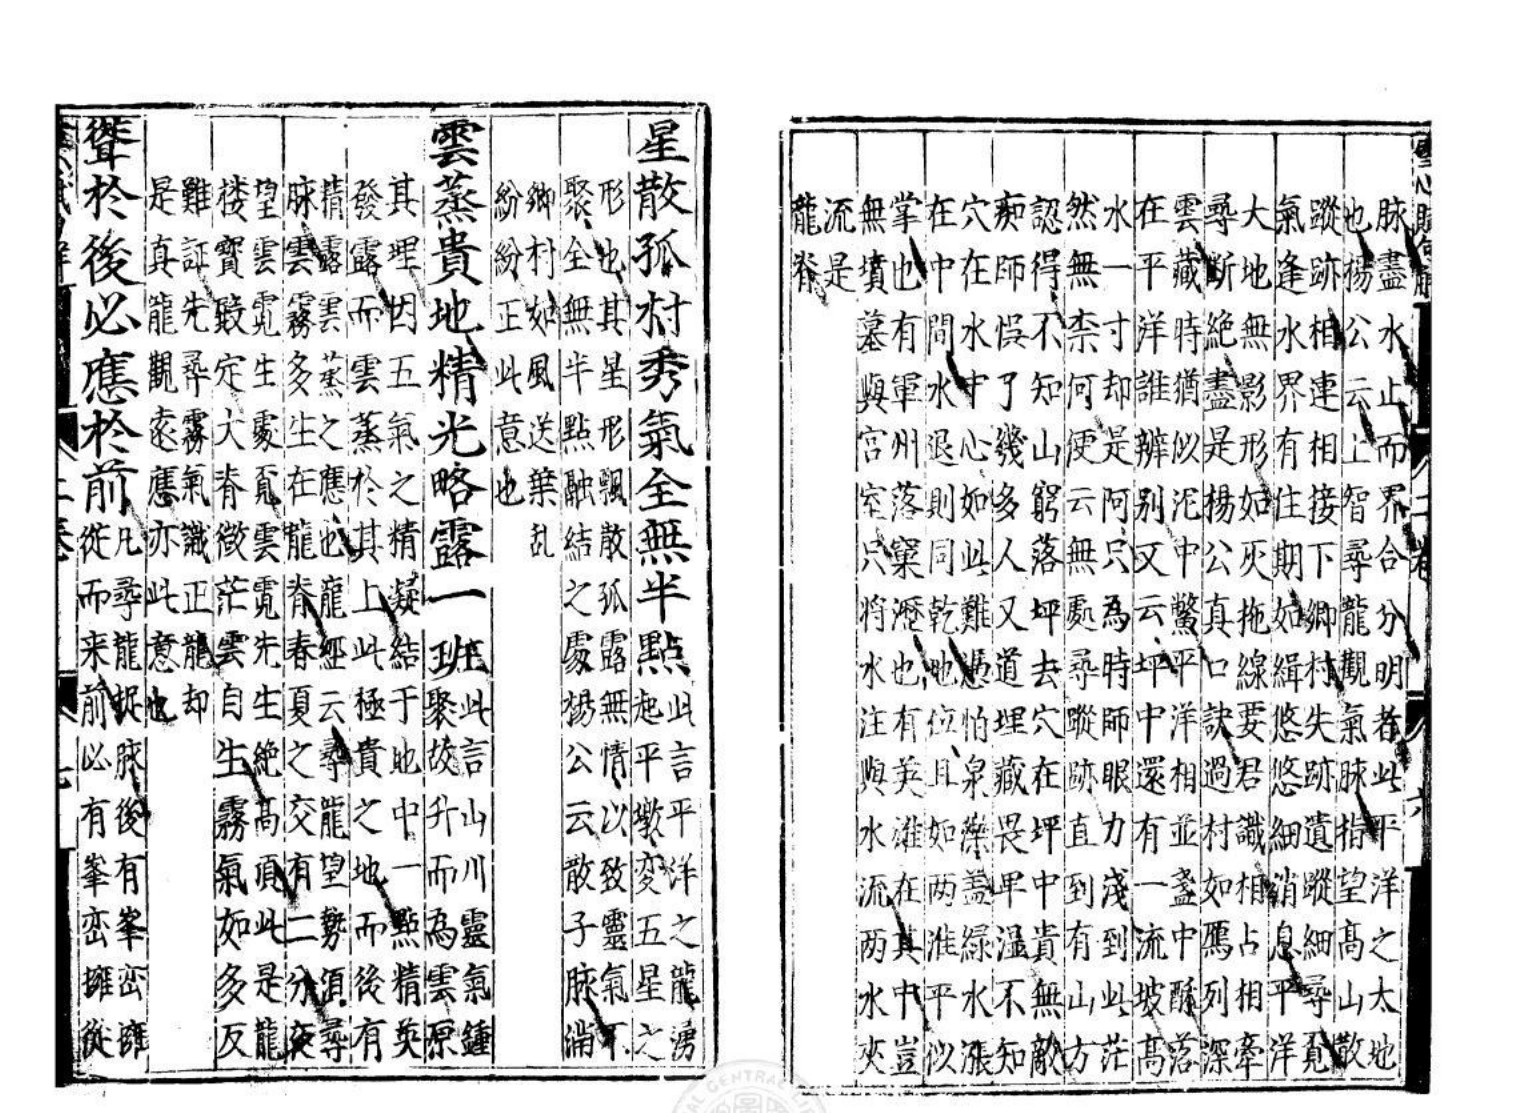 脉盡水止而界合分明者此平洋之太地
也楊公云上智尋龍觀氣脉指望高山散
蹤跡相連相接下鄉村失跡遺蹤細尋覓
氣逢水界有住期如緝悠悠細消息平洋
大地無影形如灰拖線要君識相占相牽
尋斷絕盡是楊公真口訣過村如鴈列深
雲藏時猶似泥中鱉平洋相並盞中酥落
在平洋誰辨别又云坪中還有一流坡高
水一寸却是阿只為時師眼力淺到此茫
然無柰何便云無處尋蹤跡直到有山方
認得不知山窮落坪去穴在坪中貴無敵
痴師悞了幾多人又道埋藏畏卑濕不知
穴在水中心如此難憑怕泉蓋緑水漲
在中間水退則同乾地位且如两淮平似
掌也有軍州落窠瀝也有英雄在其中豈
無墳墓與宫室只将水注與水流两水夾
流是
龍脊
星散孤村秀氣全無半點
此言平洋之龍湧
起平墩变五星之
形也其星形飄散孤露無情以致靈氣不
聚全無半點融結之處楊公云散子脉滿
鄉村如風送葉乱
紛紛正此意也
雲蒸貴地精光略露一班
此言山川靈氣鍾
聚故升而為雲原
其理因五氣之精凝結于地中一點精英
發露而雲蒸於其上此極貴之地而後有
精露雲蒸之應也龍經云尋龍望勢須尋
脉雲霧多生在龍脊春夏之交有二分夜
望雲霓生處覓雲霓先生絶高頂此是龍
楼寳殿定大脊微茫雲自生霧氣如多反
難証先尋霧氣識正龍却
是真龍觀遠應亦此意也
聳於後必應於前
凡尋龍捉脉後有峯峦
從而来前必有峯峦擁從